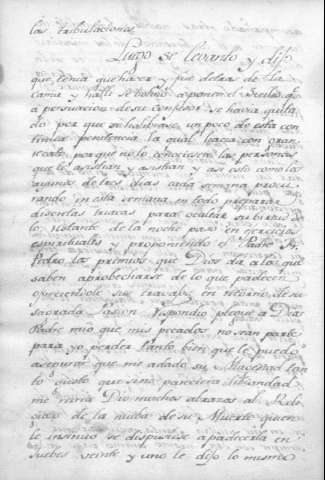 las tribulaciones.
Luego se levanto y dijo
que tenia que hacer y fue detras de la
cama y hallè se bolvio a poner el Silicio, qe
a persuacion de su Confesor se havia quita
do por que se aliviase un poco de esta con
tinua penitencia la qual hacia con gran
recato porque no lo conociesen las personas
que le asistian y asistian y asi esto como los
ayunos de tres dias cada semana procu
rando en esta semana en todo preparar
discretas trazas para ocultar su virtud.
lo restante de la noche paso en exercicios
espirituales y proponiendo el Padre Fr.
Pedro los premios que Dios da a los que
saben aprobecharse de lo que padecen
ofreciendole sus travajos en retorno de su
sagrada Pasion respondio plegue a Dios
Padre mio que mis pecados no sean parte
para yo perder tanto bien que le puedo
asegurar que me a dado su Magestad tan
to gusto que sino pareciera libiandad
me diera Dio muchos abrazos al Relo
de la de su Muerte quien
le insinuo se dispusiese a padecerla en
Juebes veinte y uno le dijo lo mismo